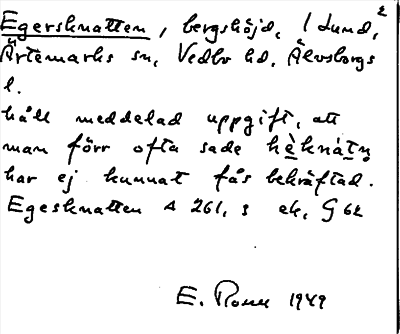 Egersknatten, bergshöjd, 1 Lund,²
Ärtemarks sn, Vedbo hd, Älvsborgs
l.
håll meddelad uppgift, att
man förr ofta sade
har ej kunnat fås bekräftad.
Egesknatten A 261, s ek, G 62
E. 1949